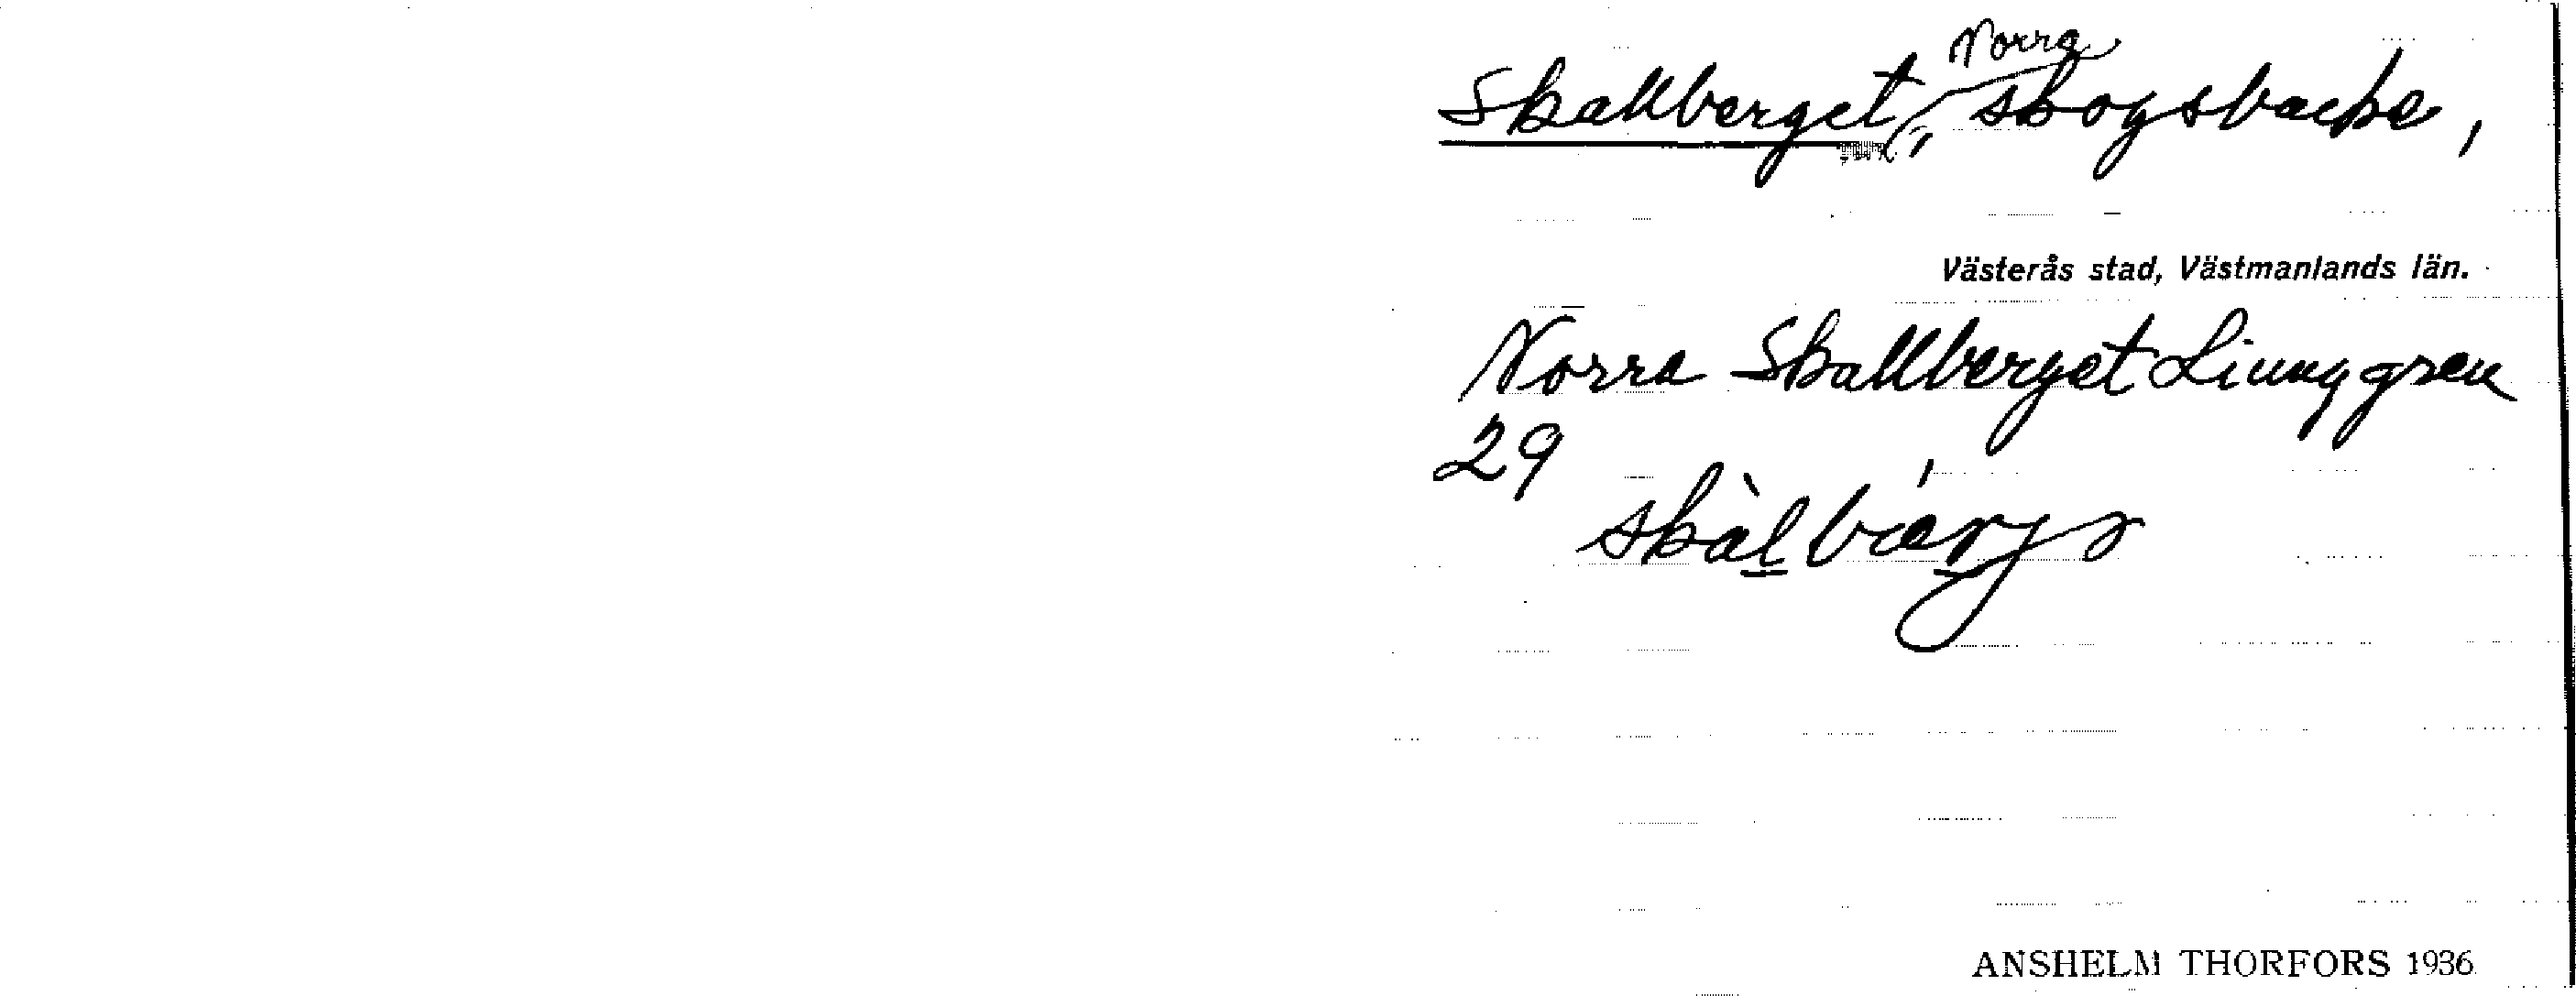 Skallberget, Norra skogsbacke,
Västerås stad, Västmanlands län.
Norra Skallberget Liunggren
29
skàl bærjə
ANSHELM THORFORS 1936